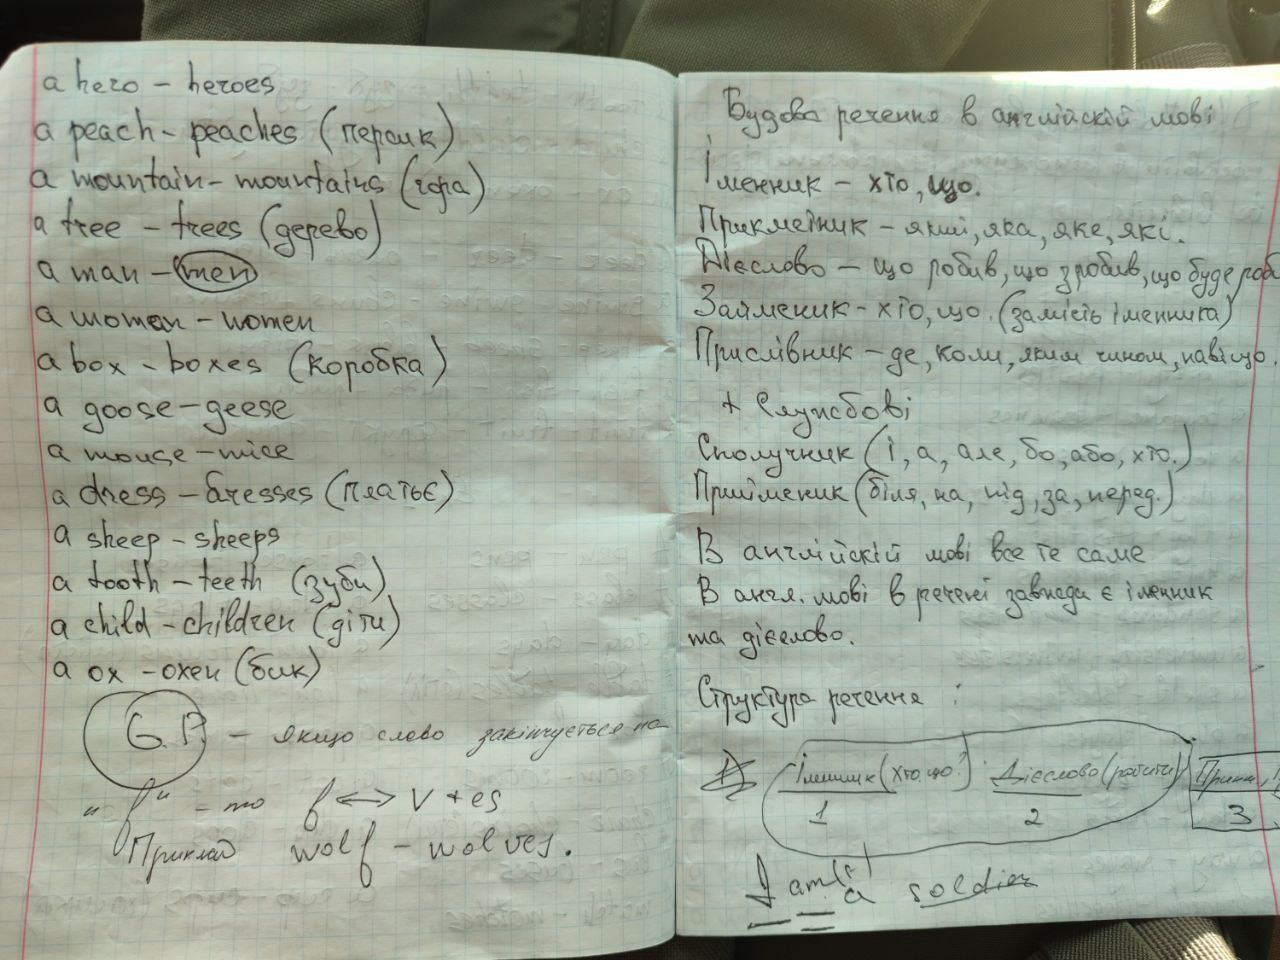 a hero – heroes
a peach – peaches (персик)
a mountain – mountains (гора)
a tree – trees (дерево)
a man – men
a woman – women
a box – boxes (коробка)
a goose – geese
a mouse – mice
a dress – dresses (платьє)
a sheep – sheeps
a tooth – teeth (зуби)
a child – children (діти)
a ox – oxen (бик)
G.P. – якщо слово закінчується на
„f" – то f ↔ v + es
Приклад wolf – wolves.
Будова речення в англійскій мові
Іменник – хто, що.
Прикметник – який, яка, яке, які.
Дієслово – що робив, що зробив, що буде роб
Займеник – хто, що. (замість іменника)
Прислівник – де, коли, яким чином, навіщо.
+ Службові
Сполучник (і, а, але, бо, або, хто.)
Прийменик (біля, на, під, за, перед.)
В англійскій мові все те саме
В англ. мові в речені завжди є іменник
та дієслово.
Структура речення :
Іменник (хто, що?) Дієслово (робити)
1 2 3
I am a soldier